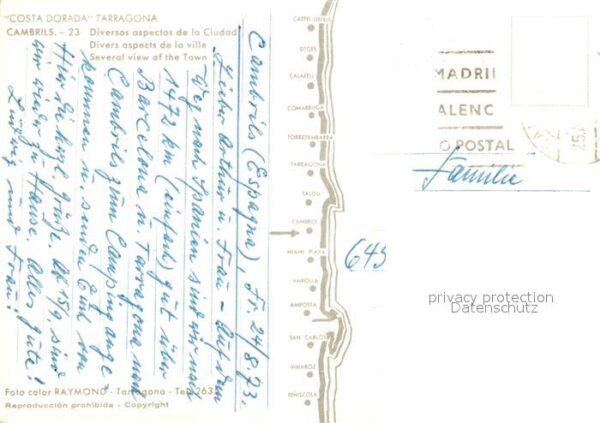 "COSTA DORADA" TARRAGONA
CAMBRILS. - 23 Diversos aspectos de la Ciudad
Divers aspects de la ville
Several view of the Town
Cambrils (Espagna), Fr. 24/8.73.
Lieber Arthur u. Frau - Auf dem
Weg nach Spanien sind wir nach
1472 km (einfach) gut über
Barcelona u. Tarragona nach
Cambrils zum Camping ange-
kommen u. senden Euch von
Hier Grüße. Ab 15/9. sind
wir wieder zu Hause. Alles gute!
Ludwig und Frau!
Foto color RAYMOND - Tarragona - Tel. 263
Reproducción prohibida - Copyright
CASTELLDEFELS
SITGES
CALAFELL
COMARRUGA
TORREDEMBARRA
TARRAGONA
SALOU
CAMBRILS
MIAMI PLAYA
AMPOLLA
AMPOSTA
SAN CARLOS
VINAROZ
PEÑISCOLA
MADRI
ALENC
O POSTAL
Familie
645
privacy protection
Datenschutz